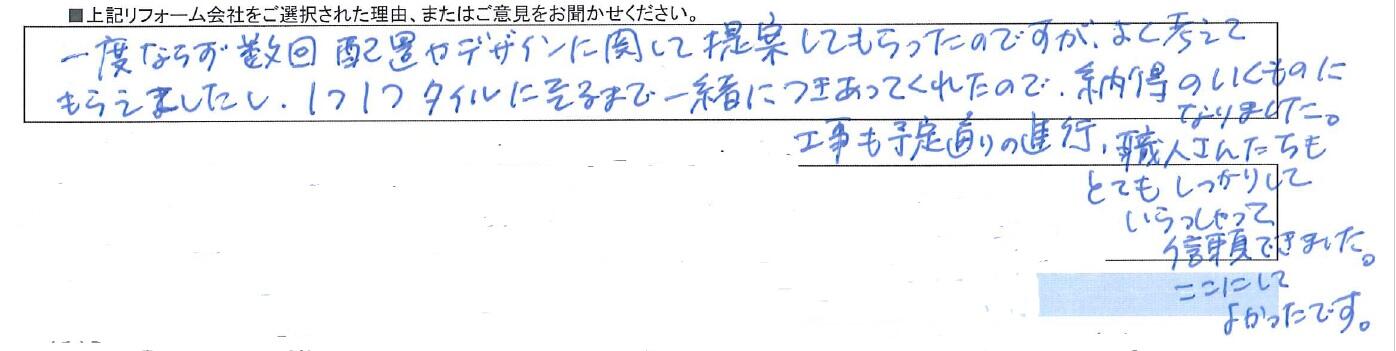 ■上記リフォーム会社をご選択された理由、またはご意見をお聞かせください。
一度ならず数回配置やデザインに関して提案してもらったのですが、よく考えて
もらえましたし、1つ1つタイルに至るまで一緒につきあってくれたので、納得のいくものに
なりました。
工事も予定通りの進行、職人さんたちも
とてもしっかりして
いらっしゃって、
信頼できました。
ここにして
よかったです。